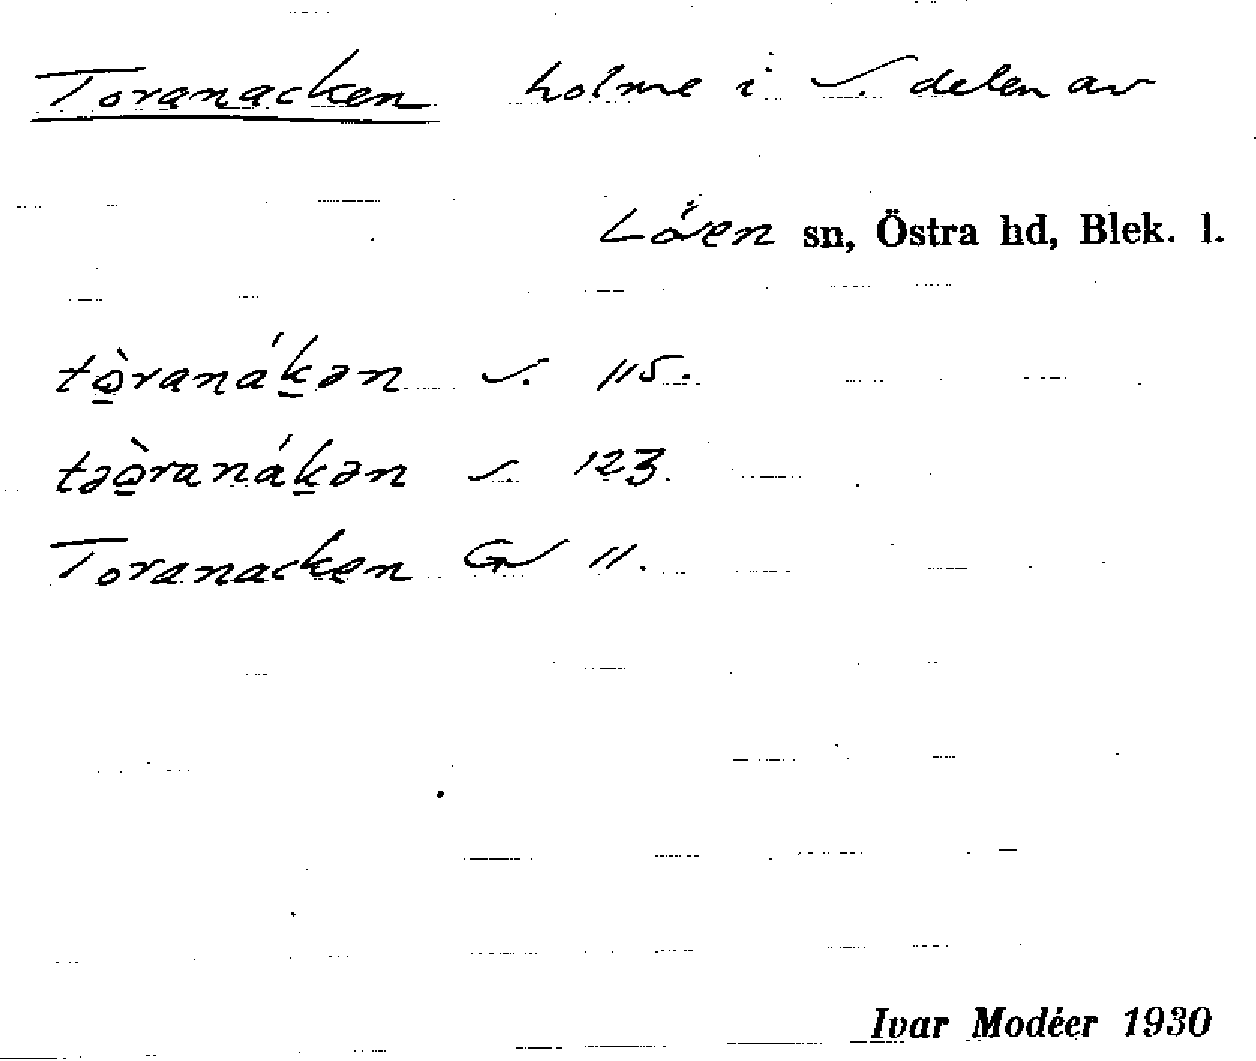 Toranacken holme i S. delen av
Löen sn, Östra hd, Blek. l.
tò̱ranáḵən S. 115.
təò̱ranáḵən S. 123.
Toranacken GV 11.
Ivar Modéer 1930